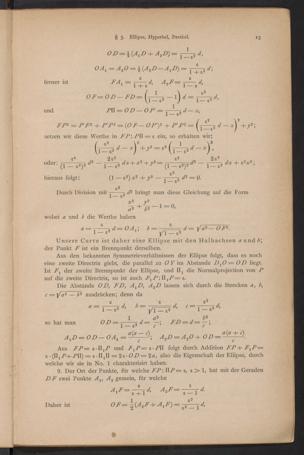 § 3. Ellipse, Hyperbel, Parabel. 13
OD = ½(A₁D + A₂D) = 1/(1−ε²) d,
OA₁ = A₂O = ½(A₂D − A₁D) = ε/(1−ε²) d;
ferner ist FA₁ = ε/(1+ε) d, A₂F = ε/(1−ε) d,
OF = OD − FD = (1/(1−ε²) − 1) d = ε²/(1−ε²) d,
und
setzen wir diese Werthe in FP:PΠ = ε ein, so erhalten wir:
oder:
hieraus folgt:
Durch Division mit bringt man diese Gleichung auf die Form
x²/a² + y²/b² − 1 = 0,
wobei a und b die Werthe haben
Unsere Curve ist daher eine Ellipse mit den Halbachsen a und b;
der Punkt F ist ein Brennpunkt derselben.
Aus den bekannten Symmetrieverhältnissen der Ellipse folgt, dass es noch
eine zweite Directrix giebt, die parallel zu OY im Abstande D₁O = OD liegt.
Ist F₁ der zweite Brennpunkt der Ellipse, und Π₁ die Normalprojection von P
auf die zweite Directrix, so ist auch F₁P:Π₁P = ε.
Die Abstände OD, FD, A₁D, A₂D lassen sich durch die Strecken a, b,
c = √(a² − b²) ausdrücken; denn da
a = ε/(1−ε²) d, b = ε/√(1−ε²) d, c = ε²/(1−ε²) d,
so hat man OD = 1/(1−ε²) d = a²/c; FD = d = b²/c;
A₁D = OD − OA₁ = a(a−c)/c; A₂D = A₂O + OD = a(a+c)/c.
Aus FP = ε·Π₁P und F₁P = ε·PΠ folgt durch Addition FP + F₁P =
ε·(Π₁P + PΠ) = ε·Π₁Π = 2ε·OD = 2a, also die Eigenschaft der Ellipse, durch
welche wir sie in No. 1 charakterisirt haben.
9. Der Ort der Punkte, für welche FP:ΠP = ε, ε > 1, hat mit der Geraden
DF zwei Punkte A₁, A₂ gemein, für welche
A₁F = ε/(ε+1) d, A₂F = ε/(ε−1) d.
Daher ist OF = ½(A₂F + A₁F) = ε²/(ε²−1) d,